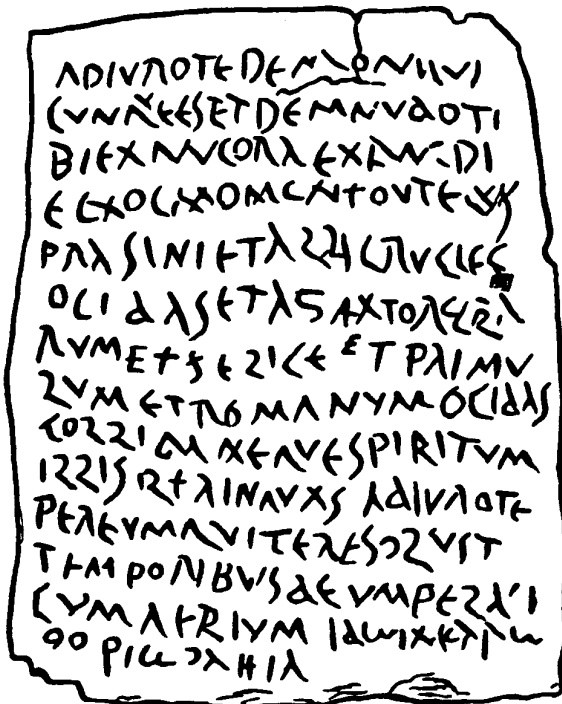 ADIVRO TE DEMON QVI
CVNQVE ES ET DEMANDO TI
BI EX ANC ORA EX ANC DI
E EX OC MOMENTO VT EQVOS
PRASINI ET ALBI CRVCIES
OCIDAS ET AGITATORE CLA
RVM ET FELICE ET PRIMV
LVM ET ROMANVM OCIDAS
COLLIDA NEQVE SPIRITVM
ILLIS RELINQVAS ADIVRO TE
PER EVM QVI TE RESOLVIT
TEMPORIBVS DEVM PELAGI
CVM AERIVM